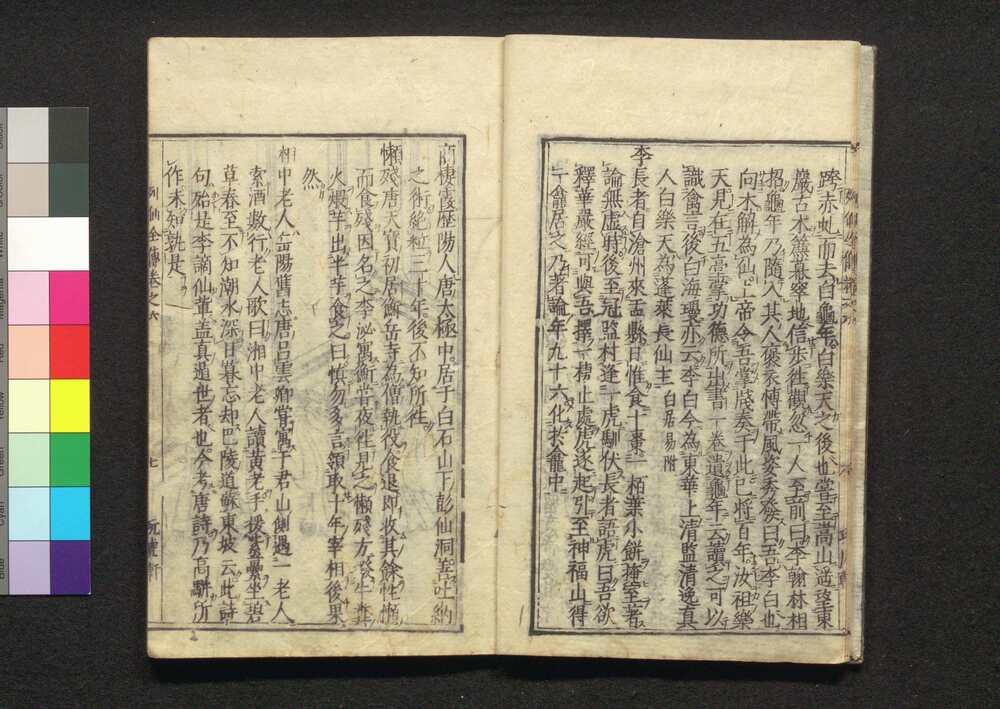 跨赤虬而去白龜年白樂天之後也嘗至嵩山遥望東
巖古木簾幕窣地信歩徃觀忽一人至前曰李翰林相
招龜年乃隨入其人褒衣博帶風姿秀發曰吾李白也
向水解為仙上帝令吾掌牋奏于此已將百年汝祖樂
天見在五臺掌功德所出書一卷遺龜年云讀之可以
識禽言後白海瓊亦云李白今為東華上清監清逸真
人白樂天為蓬萊長仙主 白居易附
李長者自滄州來盂縣日惟食十棗一栢葉小餅掩室著
論無虛時後至冠盖村逢一虎馴伏長者語虎曰吾欲
釋華嚴經可與吾擇一棲止處虎遂起引至神福山得
一龕居之乃著論年九十六化於龕中
商棲霞歴陽人唐太極中居于白石山下彭仙洞善吐納
之術絶粒三十年後不知所徃
懶殘唐天寶初居衡岳寺為僧執役食退即收其餘性懶
而食殘因名之李泌寓衡嘗夜徃見之懶殘方撥牛糞
火煨芋出半芋食之曰慎勿多言領取十年宰相後果
然
湘中老人岳陽舊志唐呂雲卿嘗寓于君山側遇一老人
索酒數行老人歌曰湘中老人讀黄老手援蘽坐碧
草春至不知湖水深日暮忘却巴陵道蘇東坡云此詩
句殆是李謫仙軰盖真遁世者也今考唐詩乃高駢所
作未知孰是
列仙全傳卷之六
七
玩虎軒